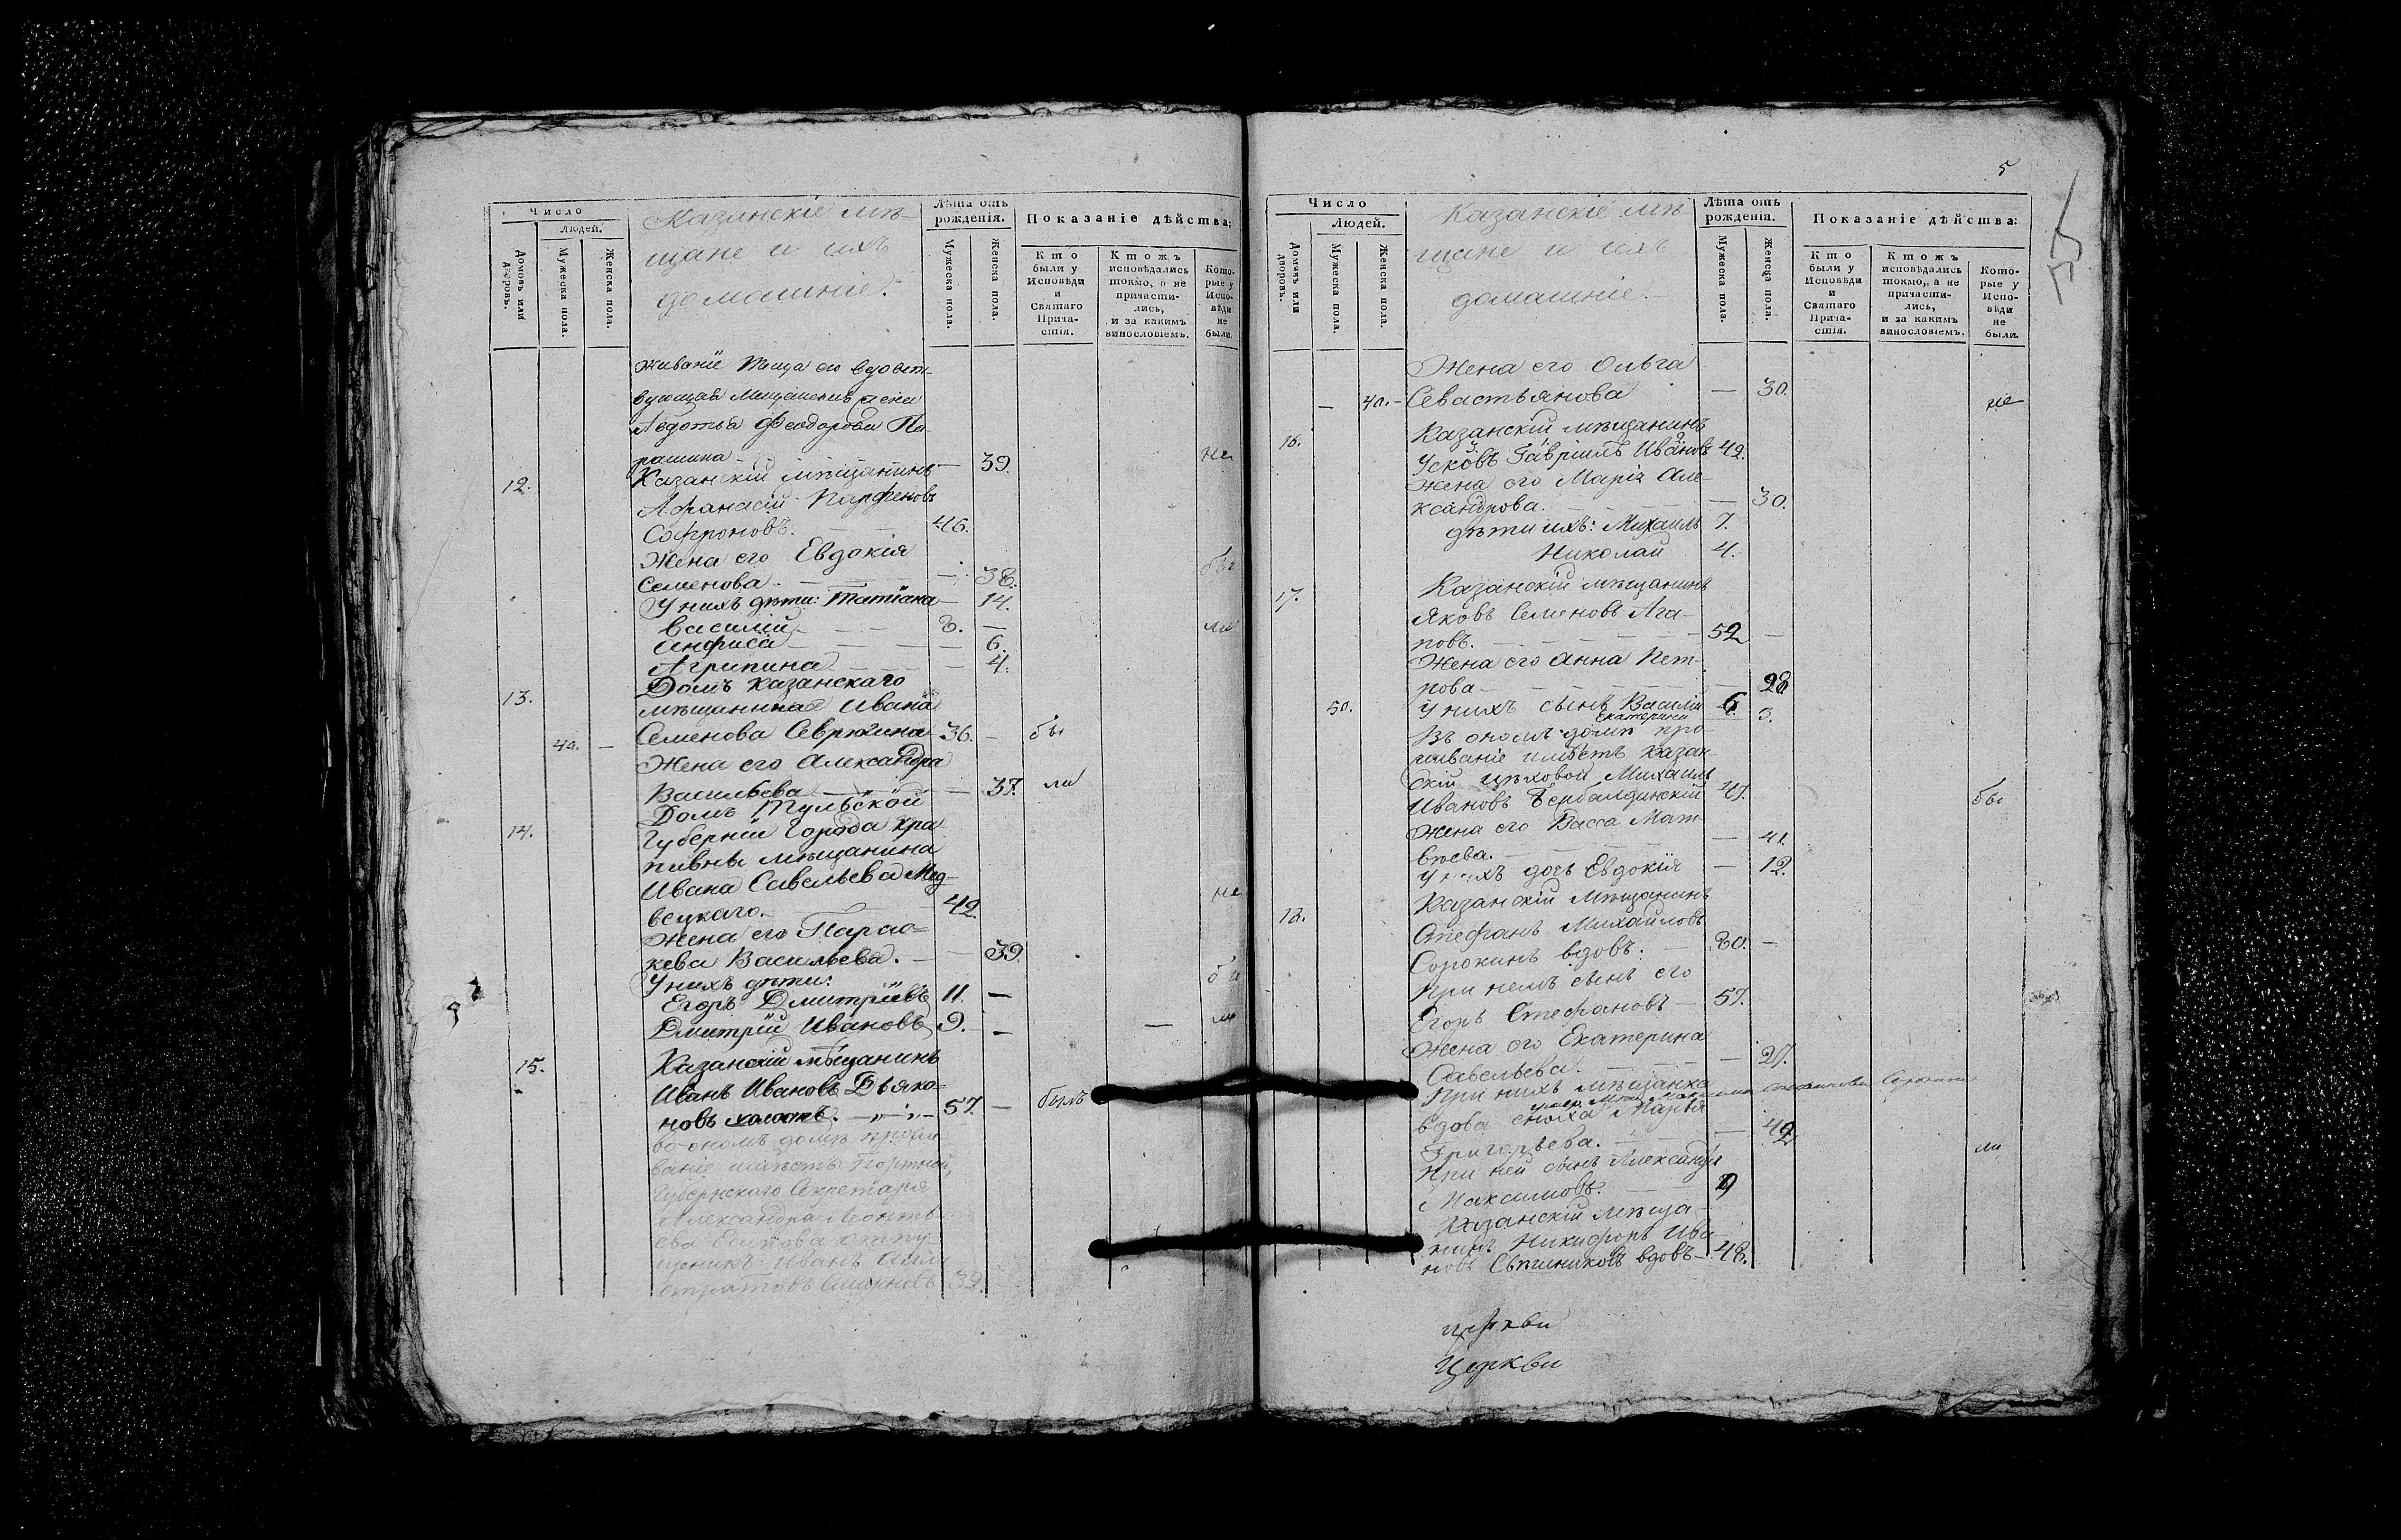 Число
Людей.
Домовъ или дворовъ.
Мужеска пола.
Женска пола.
Казанскіе мѣ-
щане и ихъ
домашніе.
Лѣта отъ рожденія.
Мужеска пола.
Женска пола.
Показаніе дѣйства:
Кто были у Исповѣди и Святаго Прича-стія.
Ктожъ исповѣдались токмо, а не причасти-лись, и за какимъ винословіемъ.
Кото-рые у Испо-вѣди не были.
живаніе теща его вдовст-
вующая мещанская жена
Авдотья Феодорова Па-
рашина — 39. не
12. Казанскій мѣщанинъ
Афанасій Парфеновъ
Софроновъ. 46.
Жена его Евдокія бы
Семенова. — 38.
У нихъ дѣти: Татіана — 14.
Василій 8. — ли
Анфиса — 6.
Агрипина — 4.
13. Домъ казанскаго
мѣщанина Ивана
40. — Семенова Севрюгина 36. — бы
Жена его Александра
Васильева — 37. ли
14. Домъ Тульской
Губерніи города Кра-
пивны мѣщанина
Ивана Савельева Мед-
вецкаго. 42. не
Жена его Парас-
кева Васильева. — 39.
У нихъ дѣти: бы
Егоръ Дмитріевъ 11. —
Дмитрій Ивановъ 9. — — ли
15. Казанскій мѣщанинъ
Иванъ Ивановъ Дьяко-
новъ холостъ. 57. — былъ
во ономъ домѣ прожи-
ваніе имѣетъ
Губернскаго Секретаря
Александра Леонть-
ева отпу-
щеникъ Иванъ
Смирновъ 39.
5
Число
Людей.
Домовъ или дворовъ.
Мужеска пола.
Женска пола.
Казанскіе мѣ-
щане и ихъ
домашніе.
Лѣта отъ рожденія.
Мужеска пола.
Женска пола.
Показаніе дѣйства:
Кто были у Исповѣди и Святаго Прича-стія.
Ктожъ исповѣдались токмо, а не причасти-лись, и за какимъ винословіемъ.
Кото-рые у Испо-вѣди не были.
Жена его Ольга
— 40. Севастьянова — 30. не
16. Казанскій мѣщанинъ
Усковъ Гавріилъ Ивановъ 42.
Жена его Марія Але-
ксандрова. — 30.
дѣти ихъ: Михаилъ 7.
Николай 4.
17. Казанскій мѣщанинъ
Яковъ Семеновъ Ага-
повъ. 52 —
Жена его Анна Пет-
рова — 28
50. У нихъ сынъ Василій 6
Екатерина 3.
Въ ономъ домѣ про-
живаніе имѣетъ Казан-
скій цѣховой Михаилъ
Ивановъ 47. бы
Жена его Васса Мат-
вѣева. — 41.
У нихъ дочь Евдокія — 12.
18. Казанскій Мѣщанинъ
Стефанъ Михайловъ
Сорокинъ вдовъ. 80. —
При немъ сынъ его
Егоръ Стефановъ 57.
Жена его Екатерина
Савельева. — 27.
При нихъ мѣщанка
вдова сноха Марья
Григорьева. — 42
При ней сынъ Александръ ли
Максимовъ. 9
Казанскій мѣща-
нинъ Никифоръ Ива-
новъ вдовъ 48.
церкви
Церкви